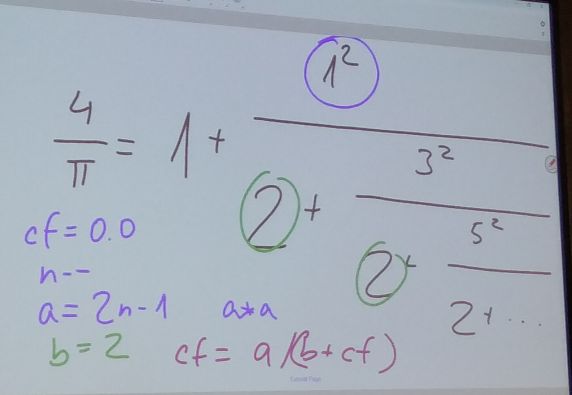 1²
4/π = 1 + 
3²
2 +
5²
2 +
2 + ...
cf = 0.0
n--
a = 2n-1 a*a
b = 2 cf = a/(b+cf)